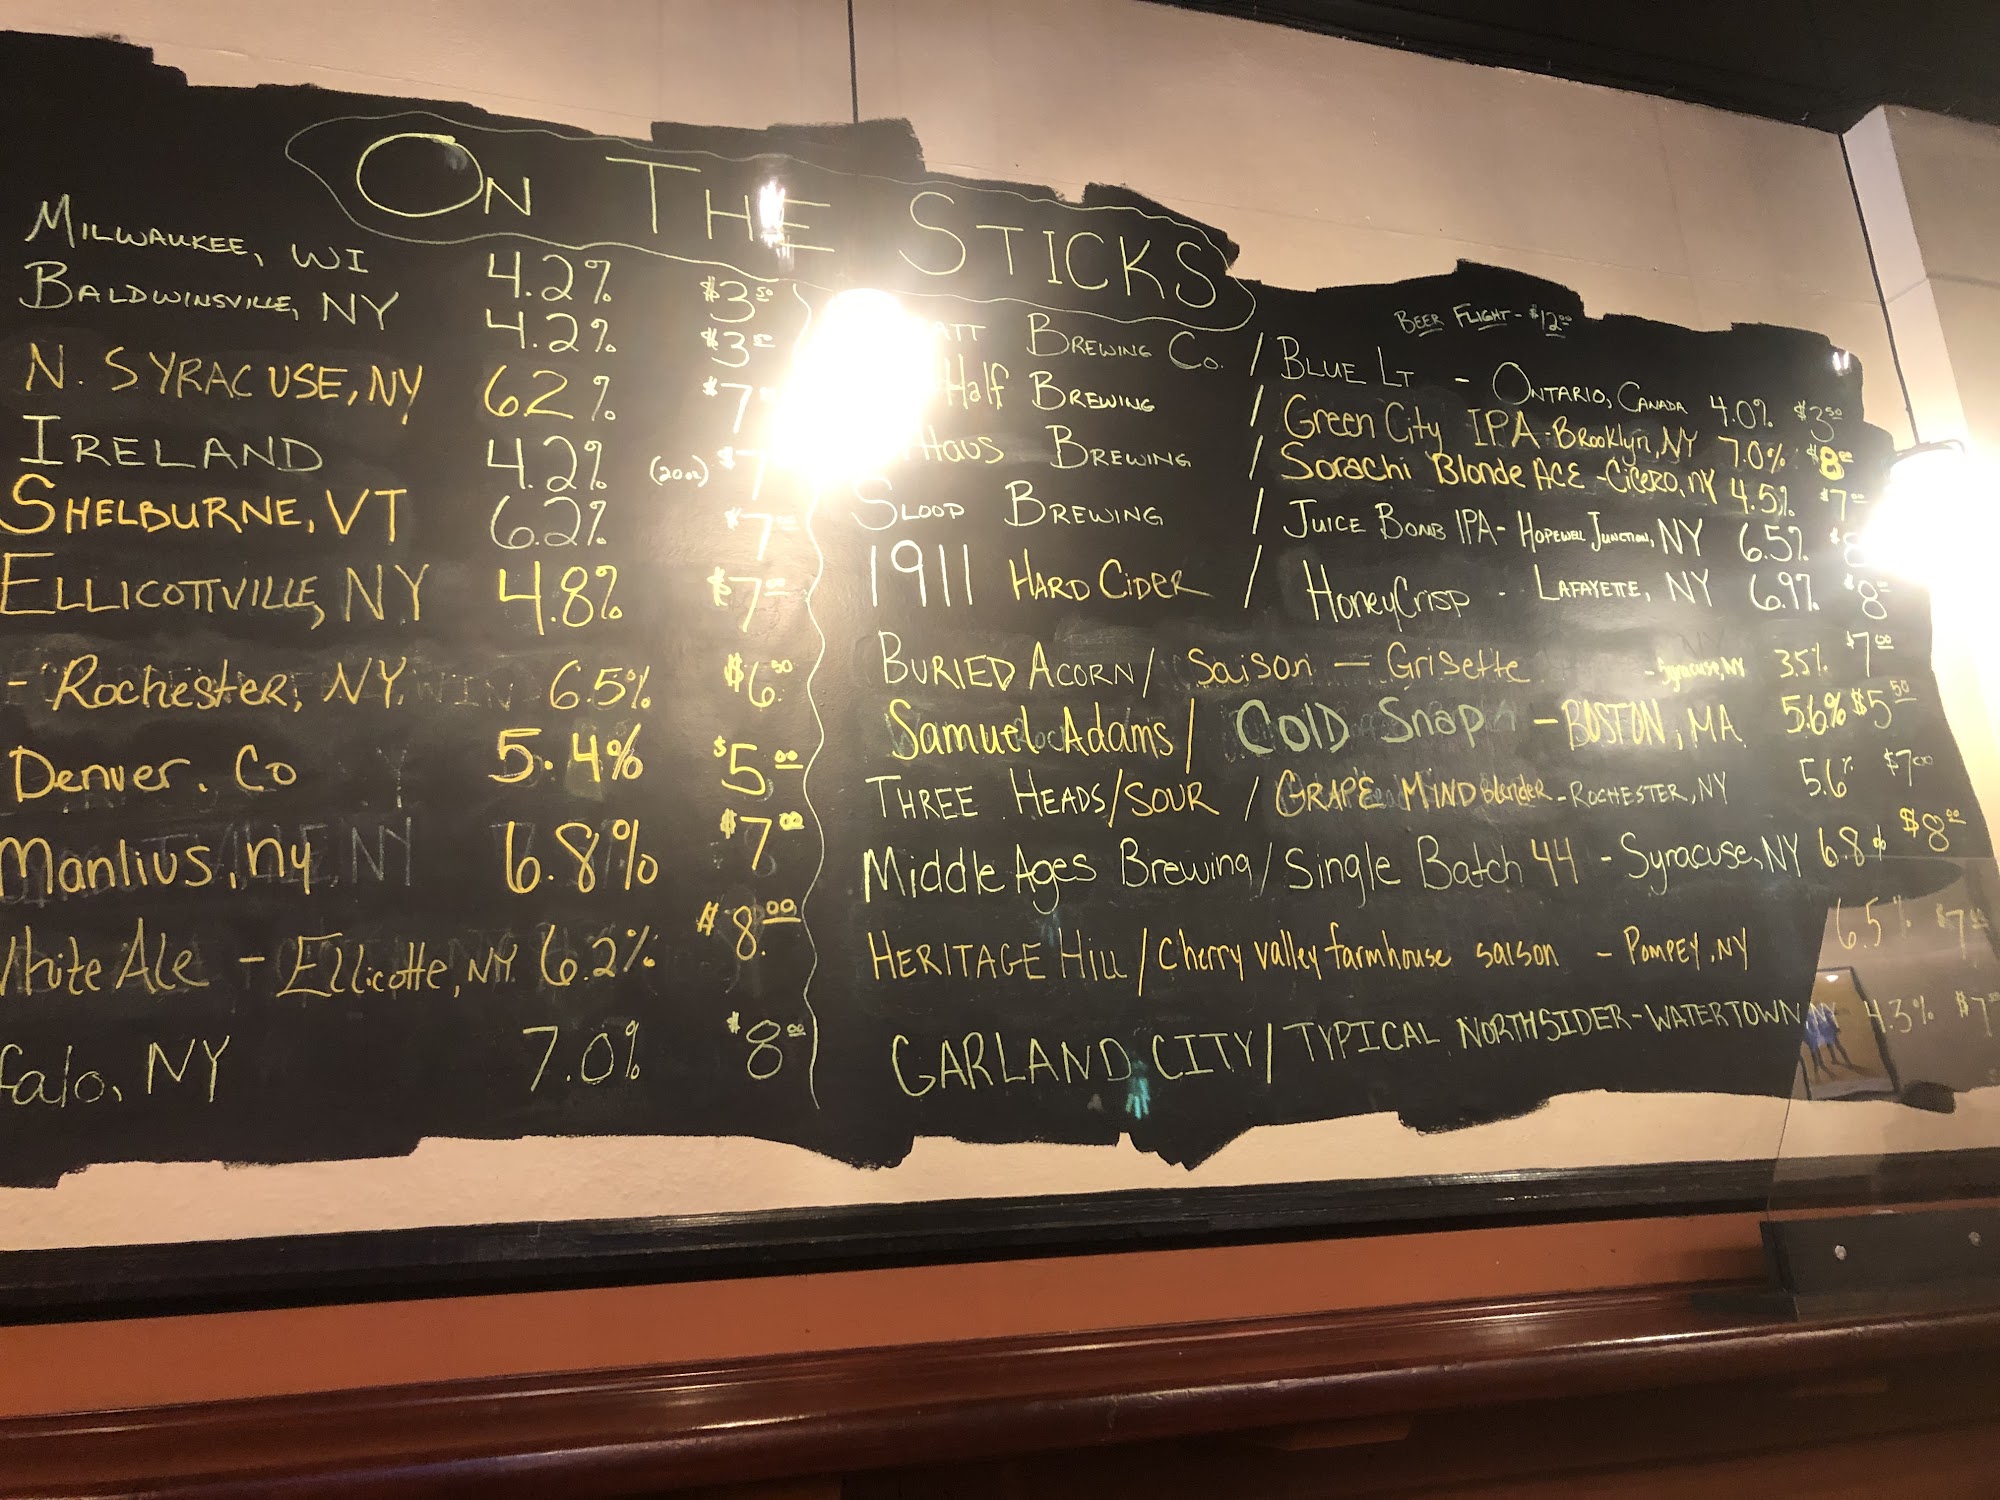 ON THE STICKS
MILWAUKEE, WI 4.2% $3.50
BALDWINSVILLE, NY 4.2% $3
N. SYRACUSE, NY 6.2% $7
IRELAND 4.2% (20oz) $7
SHELBURNE, VT 6.2% $7
ELLICOTTVILLE, NY 4.8% $7.00
- Rochester, NY. 6.5% $6.50
Denver. Co 5.4% $5.00
Manlius, ny 6.8% $7.00
White Ale - Ellicotte, NY. 6.2% $8.00
falo, NY 7.0% $8.00
BEER FLIGHT - $12.00
ATT BREWING Co. / BLUE LT - ONTARIO, CANADA 4.0% $3.50
Half BREWING / Green City IPA - Brooklyn, NY 7.0% $8
Haus BREWING / Sorachi Blonde ACE - Cicero, NY 4.5% $7.00
SLOOP BREWING / JUICE BOMB IPA - HOPEWELL JUNCTION, NY 6.5% $8
1911 HARD CIDER / HoneyCrisp - LAFAYETTE, NY 6.9% $8
BURIED ACORN / Saison - Grisette - Syracuse, NY 3.5% $7.00
Samuel Adams / COLD Snap - BOSTON, MA. 5.6% $5.50
THREE HEADS/SOUR / GRAPE MIND blender - ROCHESTER, NY 5.6% $7.00
Middle Ages Brewing / Single Batch 44 - Syracuse, NY 6.8% $8.00
HERITAGE Hill / Cherry valley farmhouse saison - POMPEY, NY 6.5% $7.00
GARLAND CITY / TYPICAL NORTHSIDER - WATERTOWN NY 4.3% $7